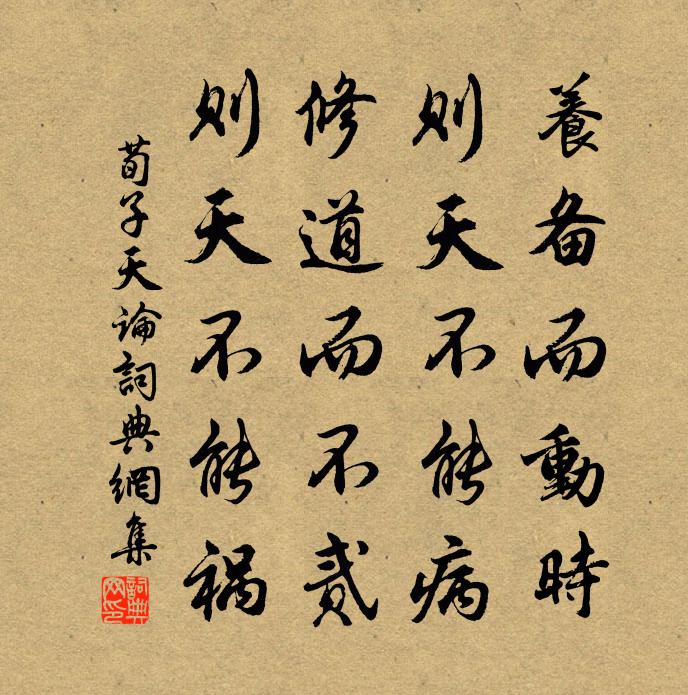 養备而動時
則天不能病
修道而不貳
則天不能禍
荀子天論詞典網集
詞典
网印